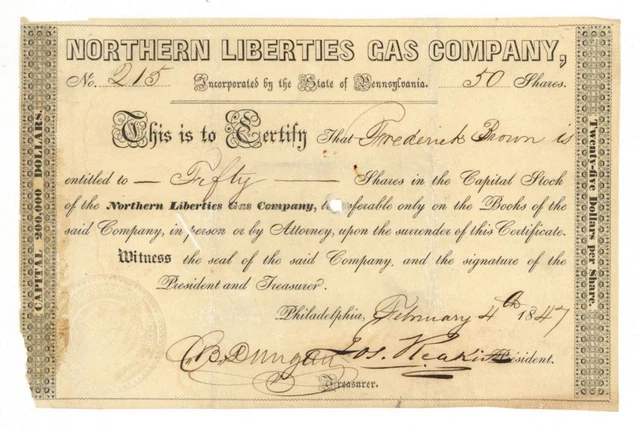 NORTHERN LIBERTIES GAS COMPANY,
No. 215 Incorporated by the State of Pennsylvania. 50 Shares.
This is to Certify That Frederick Brown is
entitled to — Fifty — Shares in the Capital Stock
of the Northern Liberties Gas Company, ferable only on the Books of the
said Company, in person or by Attorney, upon the surrender of this Certificate.
Witness the seal of the said Company, and the signature of the
President and Treasurer.
Philadelphia, February 4th 1847
C. B. Dungan Jos. President.
Treasurer.
CAPITAL 200,000 DOLLARS.
Twenty-five Dollars per Share.